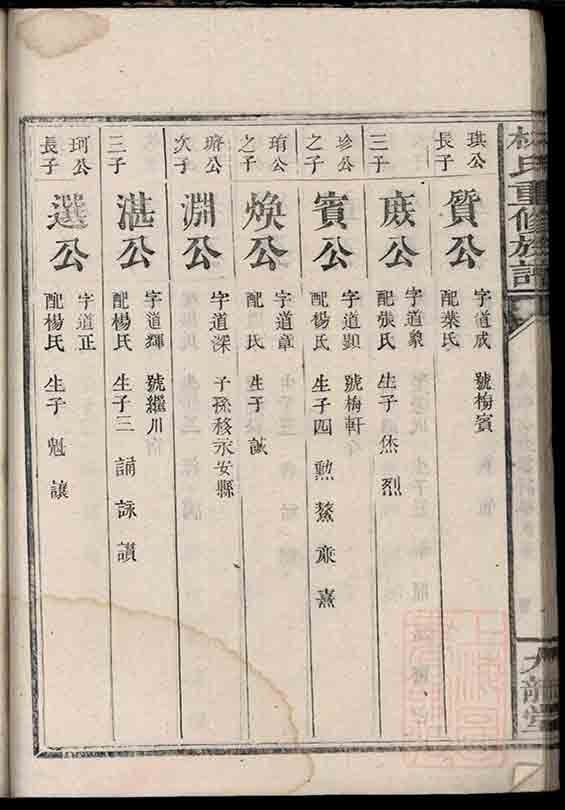 林氏重修族譜
琪公
長子
質公
字道成 號梅賓
配葉氏
三子
庶公
字道象
配張氏 生子 烈
珍公
之子
賓公
字道顯 號梅軒
配楊氏 生子四 勲 熬 熹
珛公
之子
煥公
字道章
配 氏 生子 誠
次子
淵公
字道深 子孫移永安縣
三子
湛公
字道輝 號繼川
配楊氏 生子三 誦 詠 讃
珂公
長子
選公
字道正
配楊氏 生子 魁 讓
九龍堂